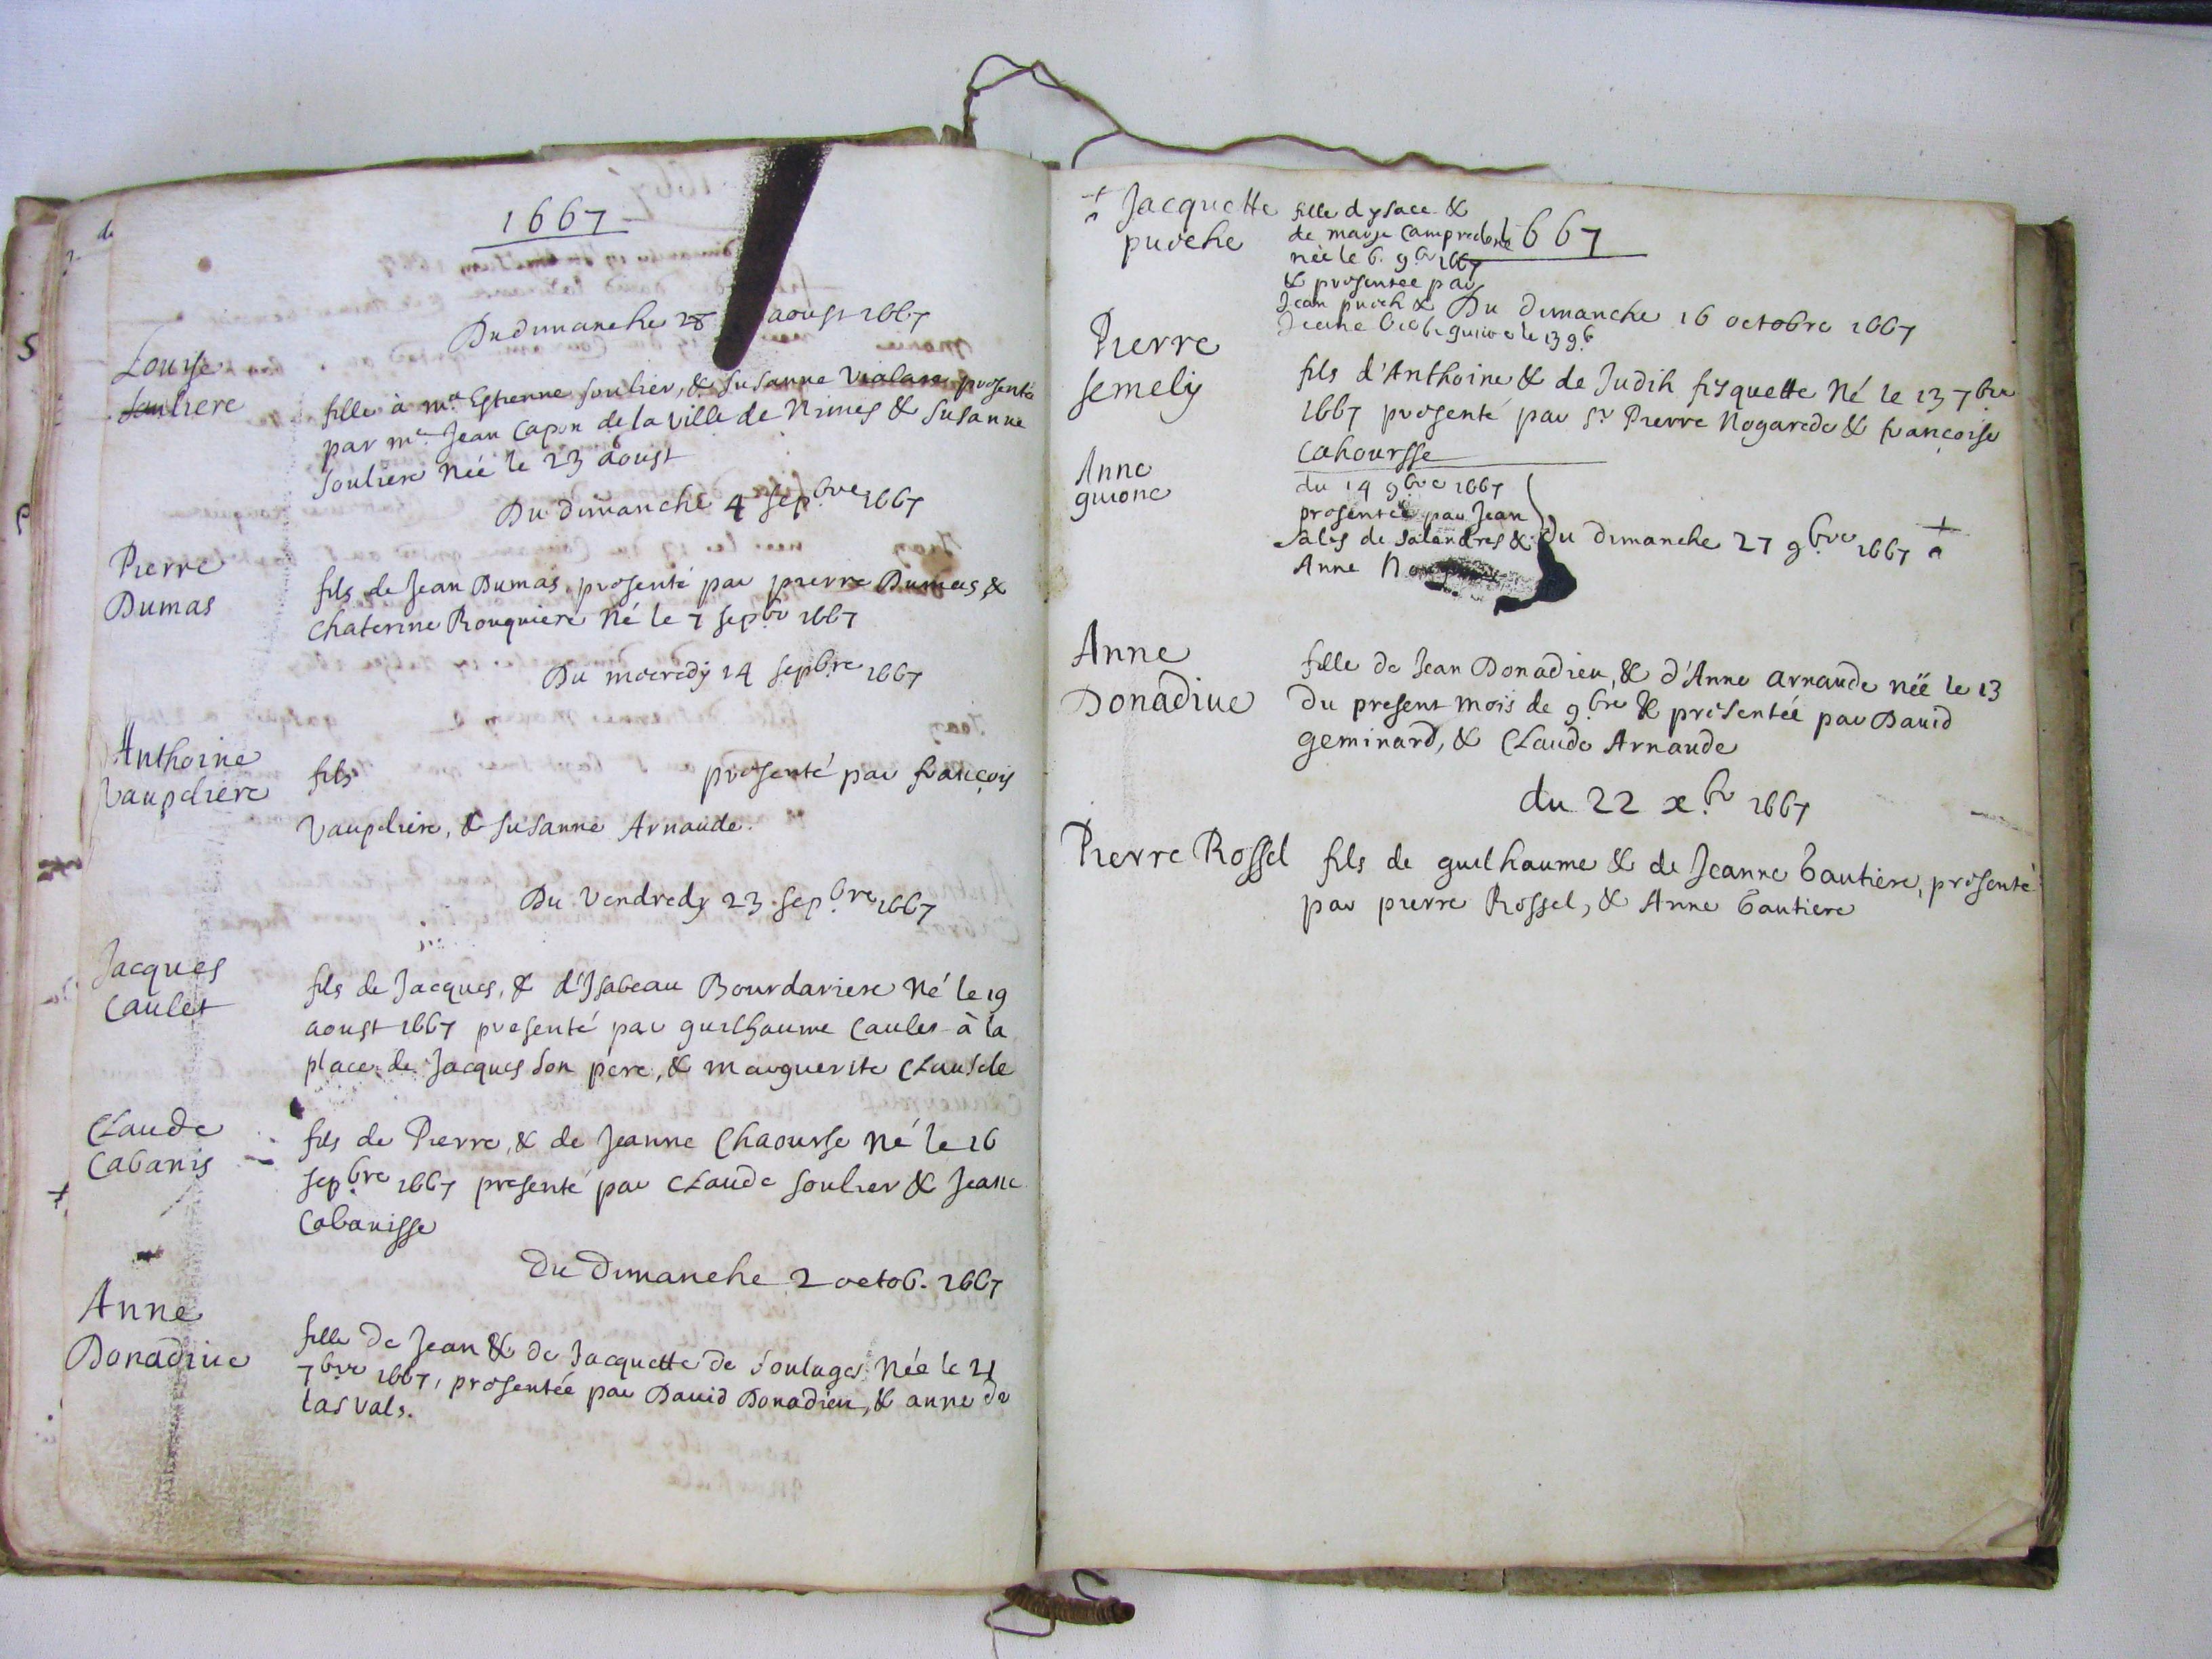 1667
Du dimanche 28 aoust 1667
Louyse
Souliere
fille à mre Estienne soulier, & susanne Vialan presenté
par mre Jean Capon de la Ville de Nimes & susanne
souliere Née le 23 aoust
Du dimanche 4 sepbre 1667
Pierre
Dumas
fils de Jean Dumas, presenté par pierre Dumas, &
Chaterine Rouquiere Né le 7 sepbre 1667
Du mecredy 14 sepbre 1667
Anthoine
Vaupeliere
fils presenté par françois
Vaupeliere, & susanne Arnaude.
Du Vendredy 23 sepbre 1667
Jacques
Caulet
fils de Jacques, & d'Isabeau Bourdariere Né le 19
aoust 1667 presenté par guilhaume Caulet à la
place de Jacques son pere, & marguerite Clausele
Claude
Cabanis
fils de Pierre, & de Jeanne Chaourse né le 16
sepbre 1667 presenté par Claude soulier & Jeane
Cabanisse
Du Dimanche 2 octob. 1667
Anne
Donadiue
fille de Jean & de Jacquette de soulages Née le 21
7bre 1667, presentée par David Donadieu, & anne de
las vals.
Jacquette
pueche
fille d ysace &
de marye Campredone
née le 6. 9br 1667
& presentée par
Jean puech &
Jeane le 13 9b
1667
Du dimanche 16 octobre 1667
Pierre
semely
fils d'Anthoine & de Judih fisquette Né le 13 7bre
1667 presenté par sr Pierre Nogarede & françoise
Cahoursse
Anne
guione
du 14 9bre 1667
presentée par Jean
Sales de salendres &
Anne
Du dimanche 27 9bre 1667
Anne
Donadiue
fille de Jean Donadieu, & d'Anne arnaude née le 13
Du present mois de 9bre & présentée par David
geminard, & Claude Arnaude
du 22 xbr 1667
Pierre Rossel
fils de guilhaume & de Jeanne Gautiere, presenté
par pierre Rossel, & Anne Gautiere